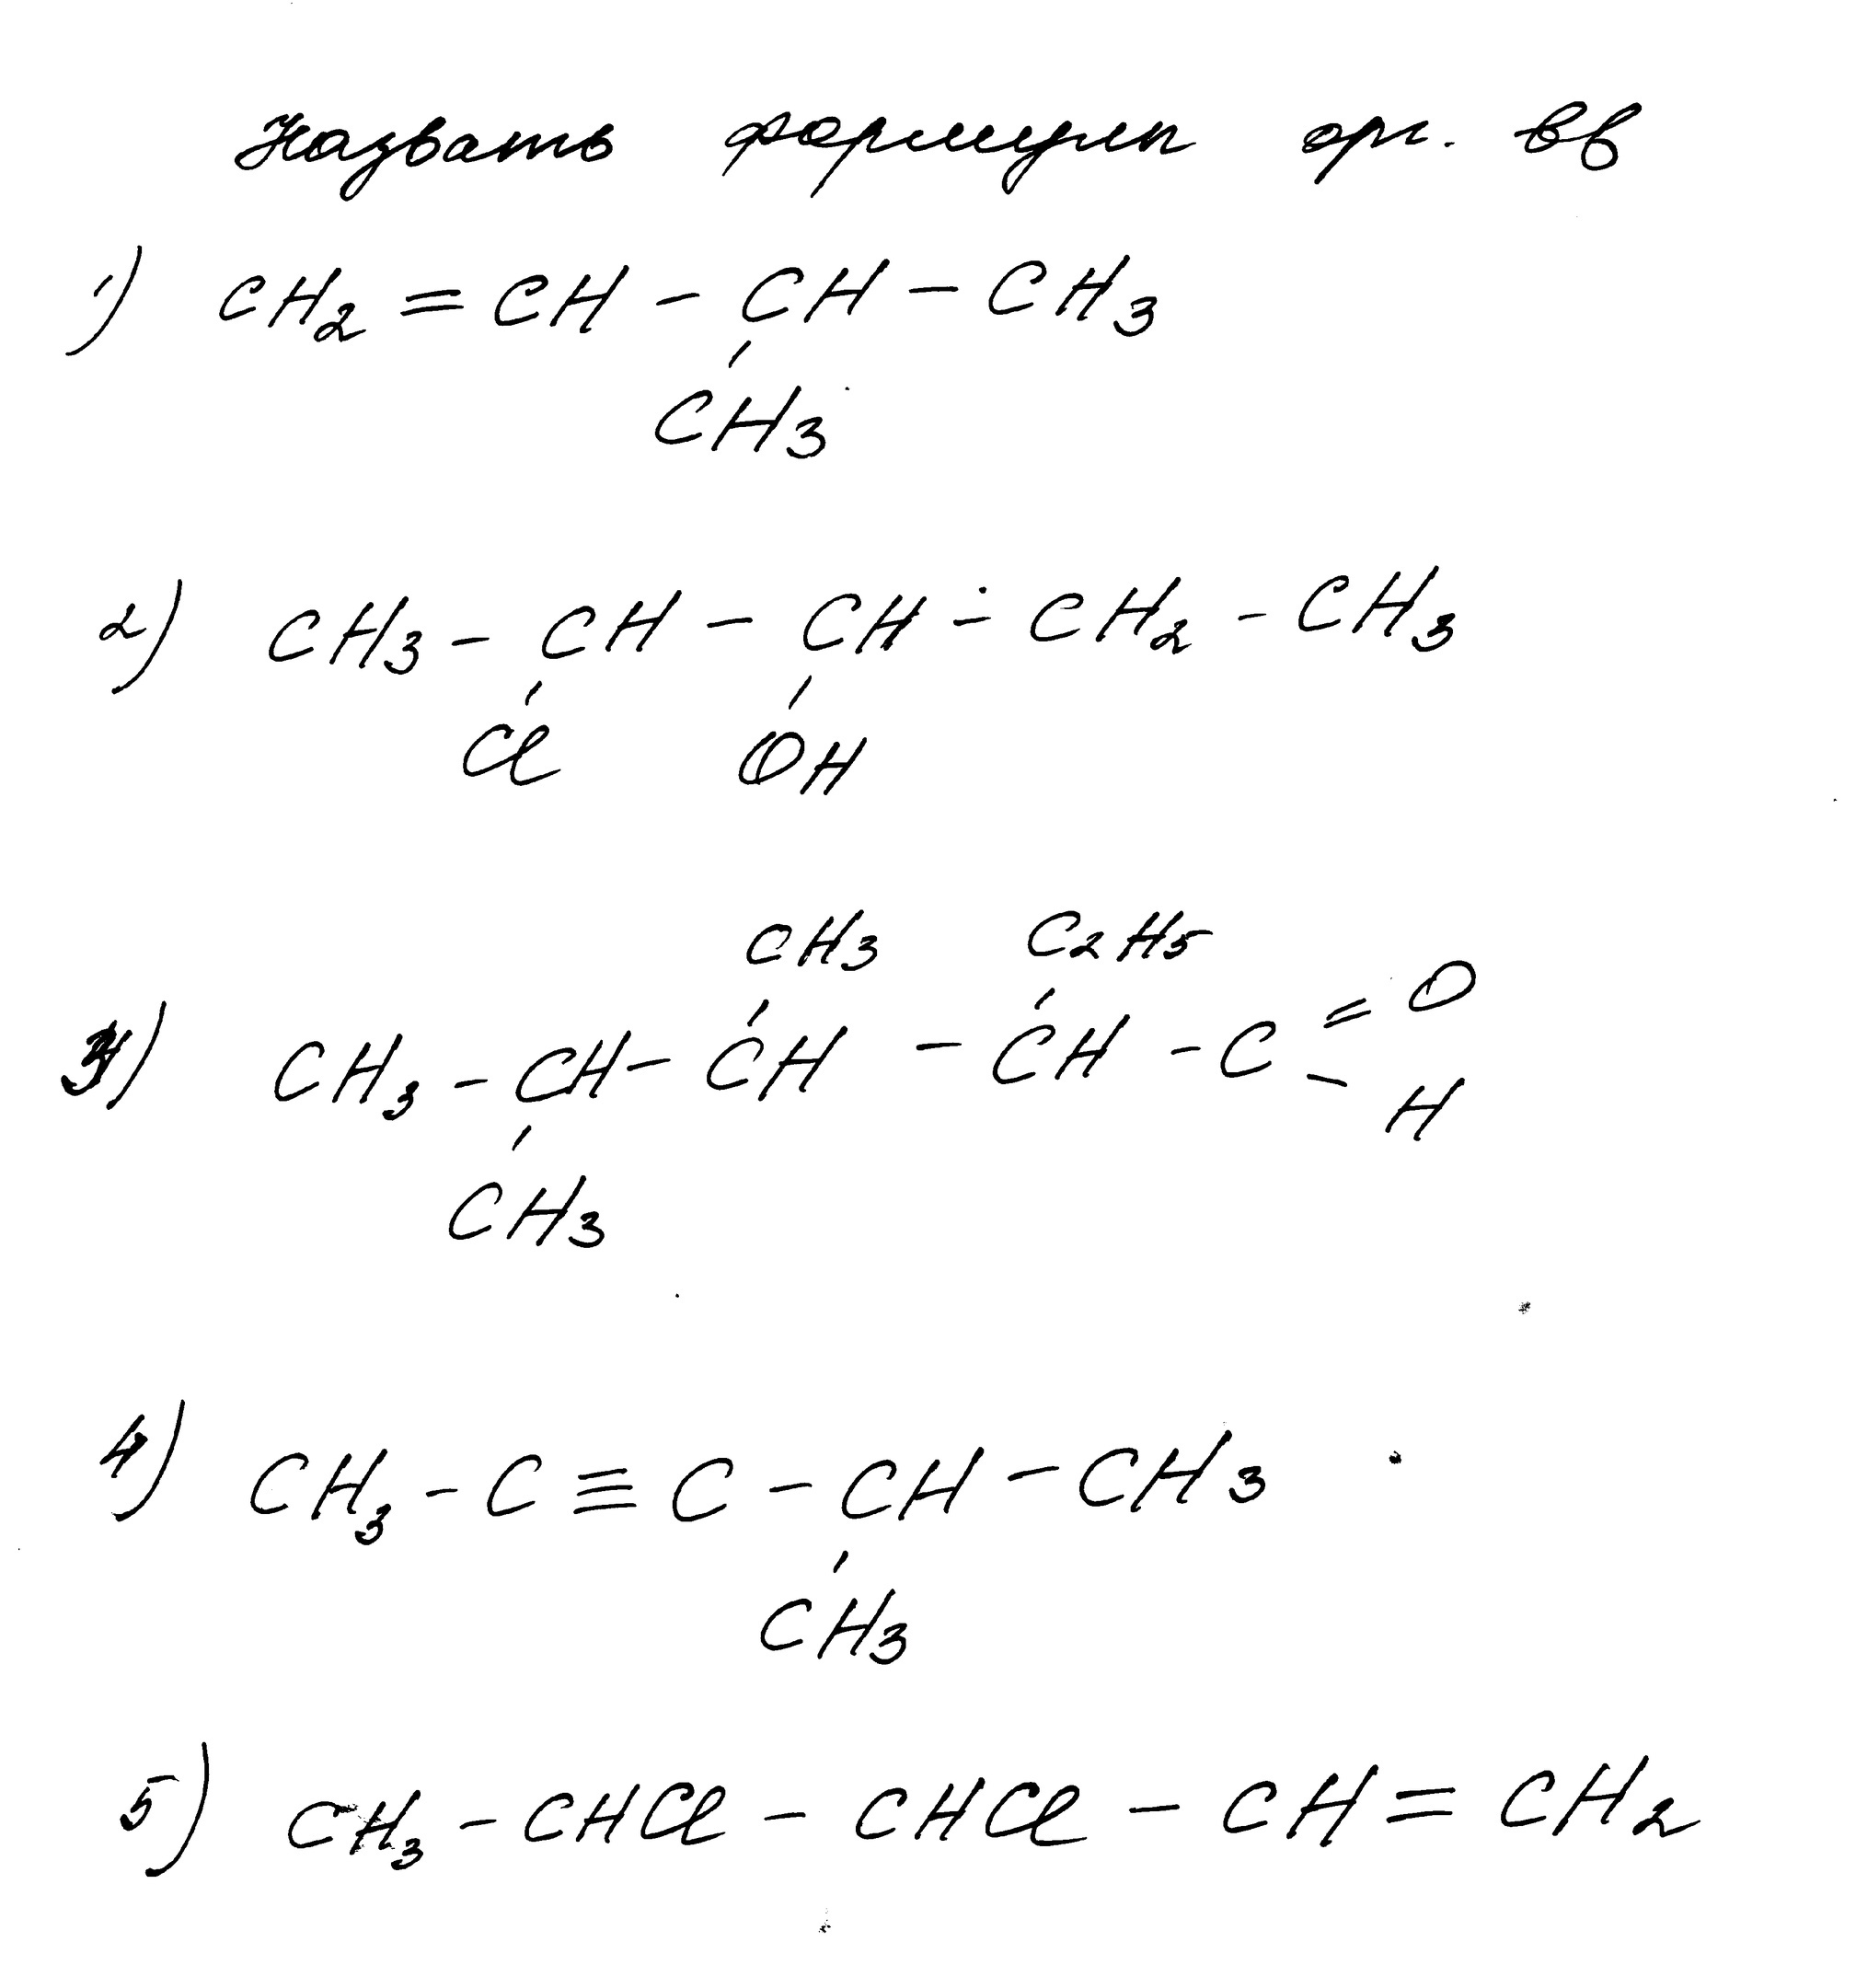 Назвать формулы орг. вв
1) CH2 = CH - CH - CH3
CH3
2) CH3 - CH - CH - CH2 - CH3
Cl OH
CH3 C2H5
3) CH3 - CH - CH - CH - C = O
- H
CH3
4) CH3 - C ≡ C - CH - CH3
CH3
5) CH3 - CHCl - CHCl - CH = CH2